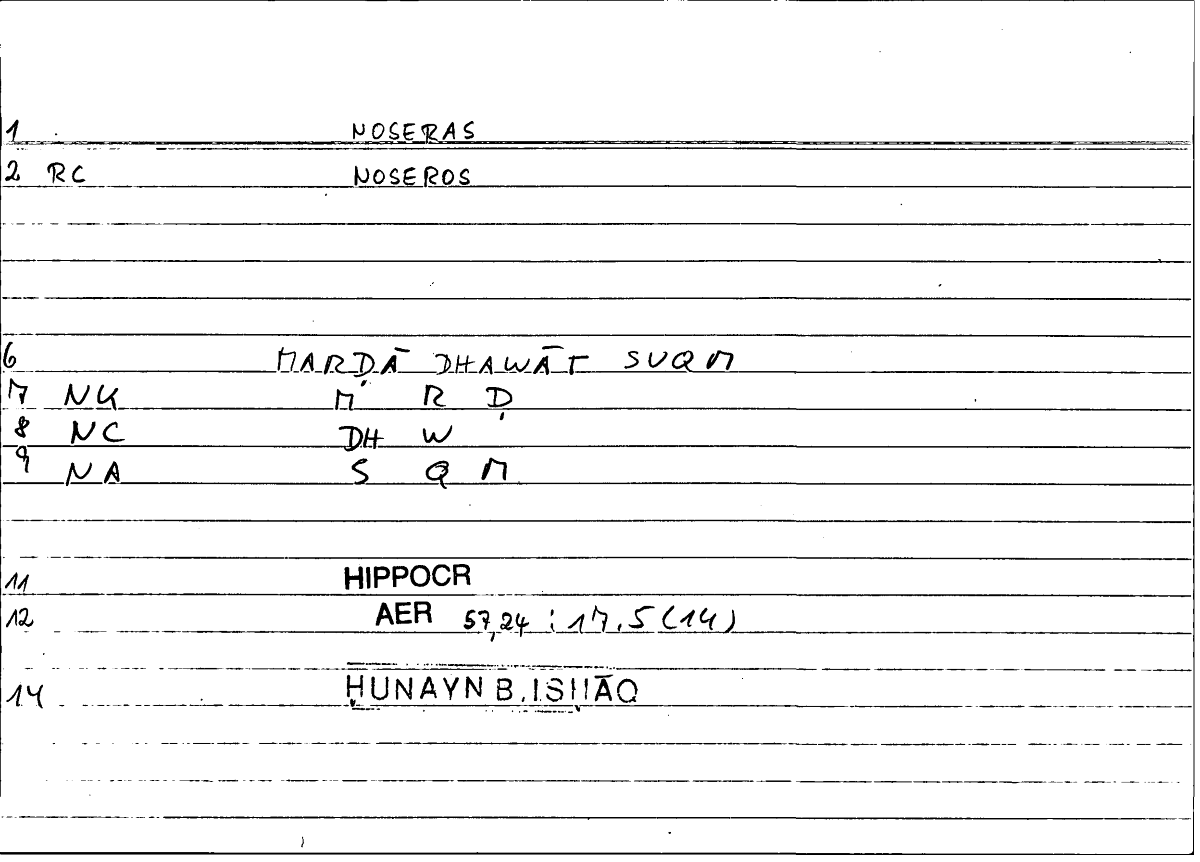 1 NOSERAS
2 RC NOSEROS
6 MARḌĀ DHAWĀT SUQM
7 NK M R Ḍ
8 NC DH W
9 NA S Q M
11 HIPPOCR
12 AER 57,24 : 17.5 (14)
14 ḤUNAYN B. ISḤĀQ